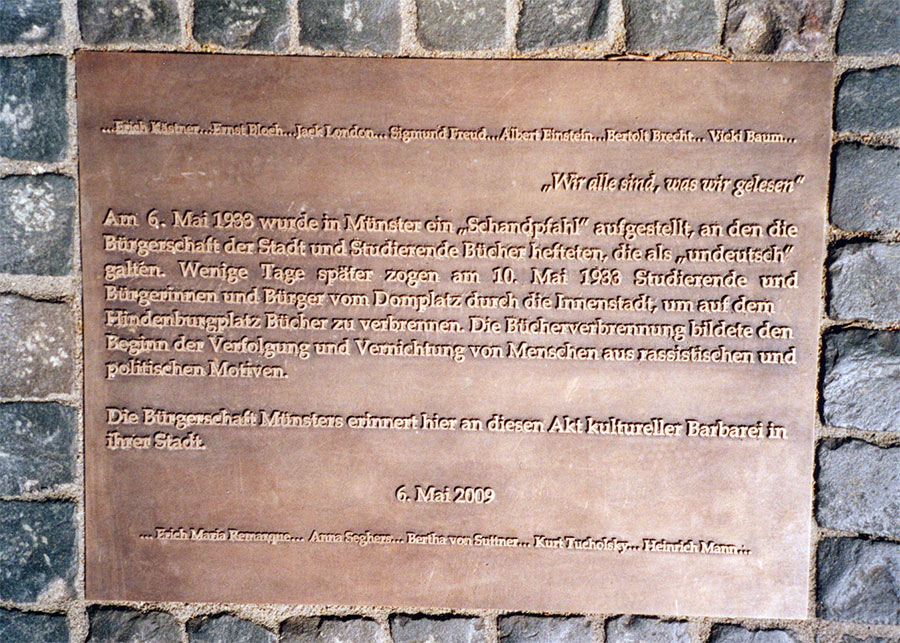 ...Erich Kästner...Ernst Bloch...Jack London... Sigmund Freud...Albert Einstein...Bertolt Brecht... Vicki Baum...
„Wir alle sind, was wir gelesen“
Am 6. Mai 1933 wurde in Münster ein „Schandpfahl“ aufgestellt, an den die
Bürgerschaft der Stadt und Studierende Bücher hefteten, die als „undeutsch“
galten. Wenige Tage später zogen am 10. Mai 1933 Studierende und
Bürgerinnen und Bürger vom Domplatz durch die Innenstadt, um auf dem
Hindenburgplatz Bücher zu verbrennen. Die Bücherverbrennung bildete den
Beginn der Verfolgung und Vernichtung von Menschen aus rassistischen und
politischen Motiven.
Die Bürgerschaft Münsters erinnert hier an diesen Akt kultureller Barbarei in
ihrer Stadt.
6. Mai 2009
... Erich Maria Remarque... Anna Seghers... Bertha von Suttner... Kurt Tucholsky... Heinrich Mann...